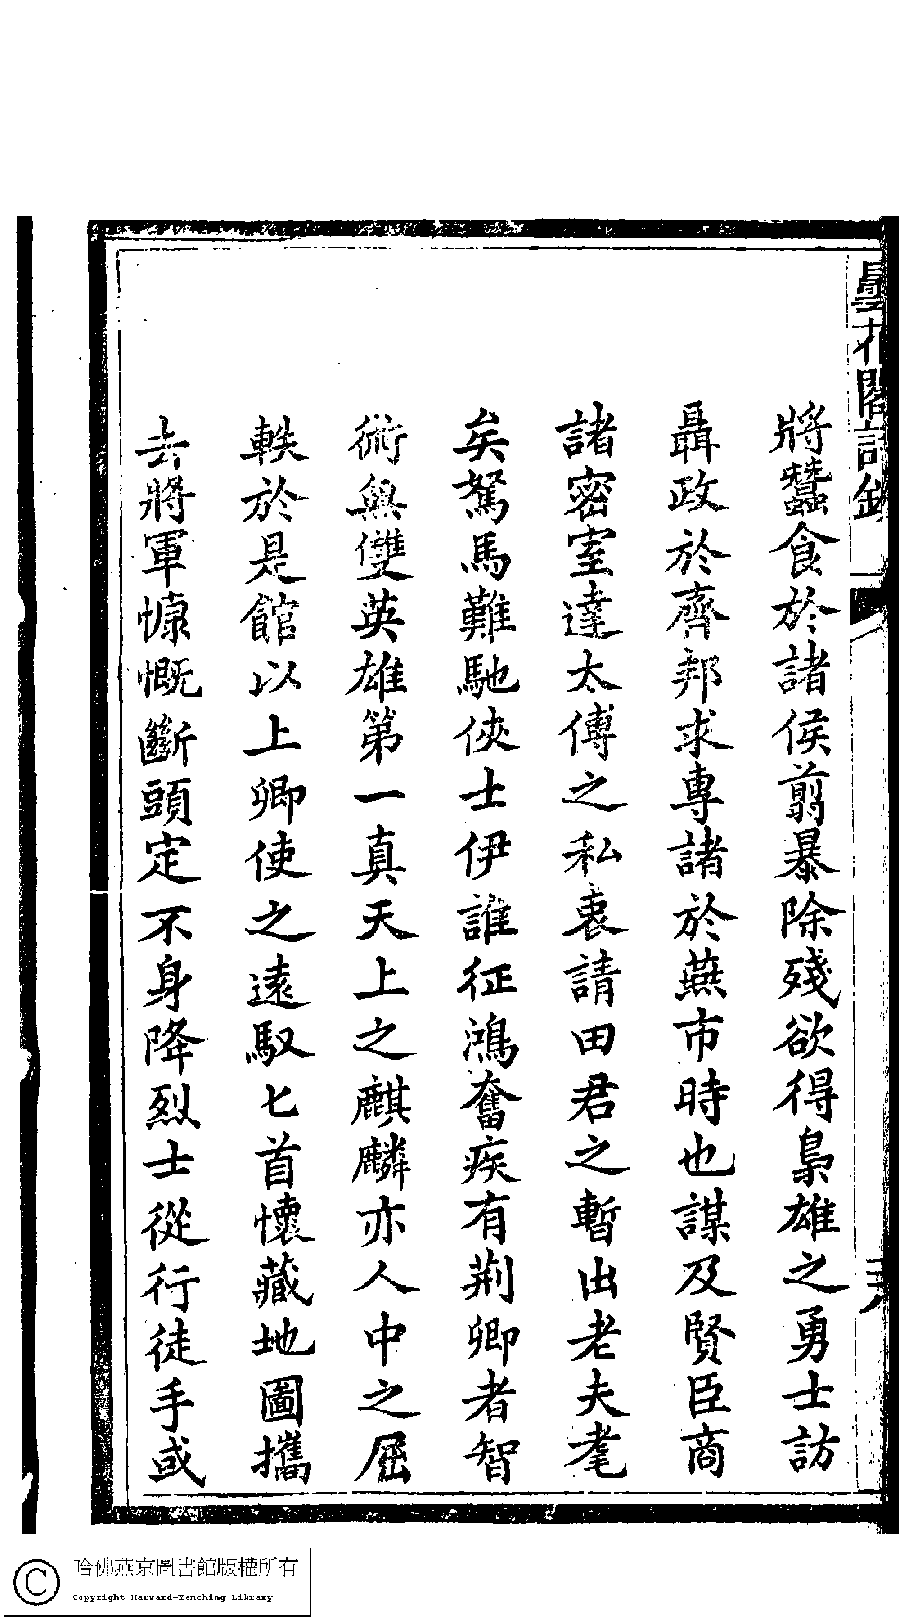 曇花閣詩鈔
將蠶食於諸侯翦暴除殘欲得梟雄之勇士訪
聶政於齊邦求專諸於燕市時也謀及賢臣商
諸密室達太傅之私衷請田君之暫出老夫耄
矣駑馬難馳俠士伊誰征鴻奮疾有荆卿者智
術無雙英雄第一真天上之麒麟亦人中之屈
軼於是館以上卿使之遠馭匕首懷藏地圖攜
去將軍慷慨斷頭定不身降烈士從行徒手或
哈佛燕京圖書館版權所有
Copyright Harvard-Yenching Library